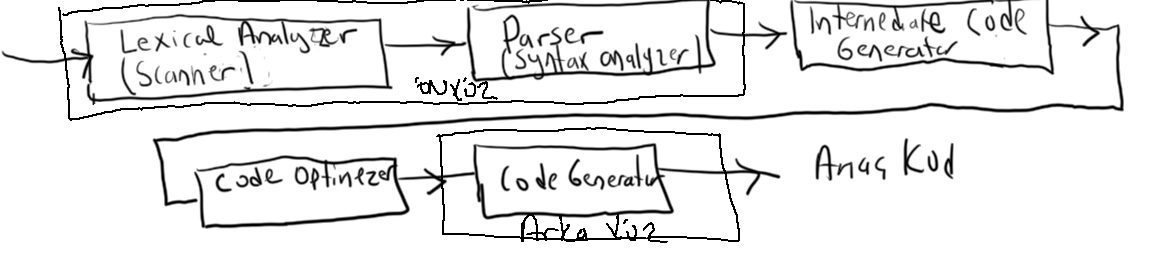 Lexical Analyzer
(Scanner)
Parser
(Syntax analyzer)
önyüz
Intermediate Code
Generator
Code Optimezer
Code Generator
Arka Yüz
Amaç Kod